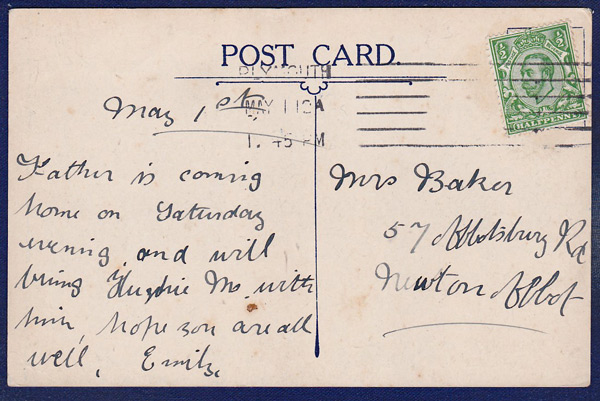 POST CARD.
PLYMOUTH
MAY 1 12A
1. 45 PM
½ ½
HALFPENNY
May 1st,
Father is coming
home on Saturday
evening and will
bring Hughie Mo. with
him, hope you are all
well, Emily,
Mrs Baker
57 Abbotsbury Rd
Newton Abbot